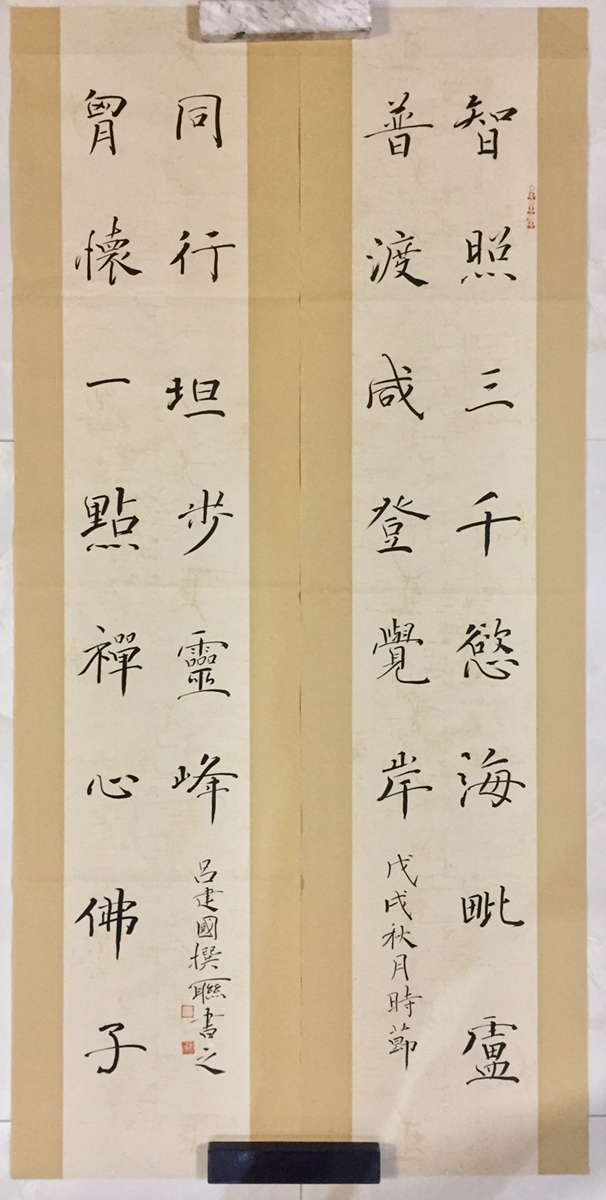 智照三千慾海毗盧
普渡咸登覺岸
戊戌秋月時節
胷懷一點禪心佛子
同行坦步靈峰
呂建國撰聯書之